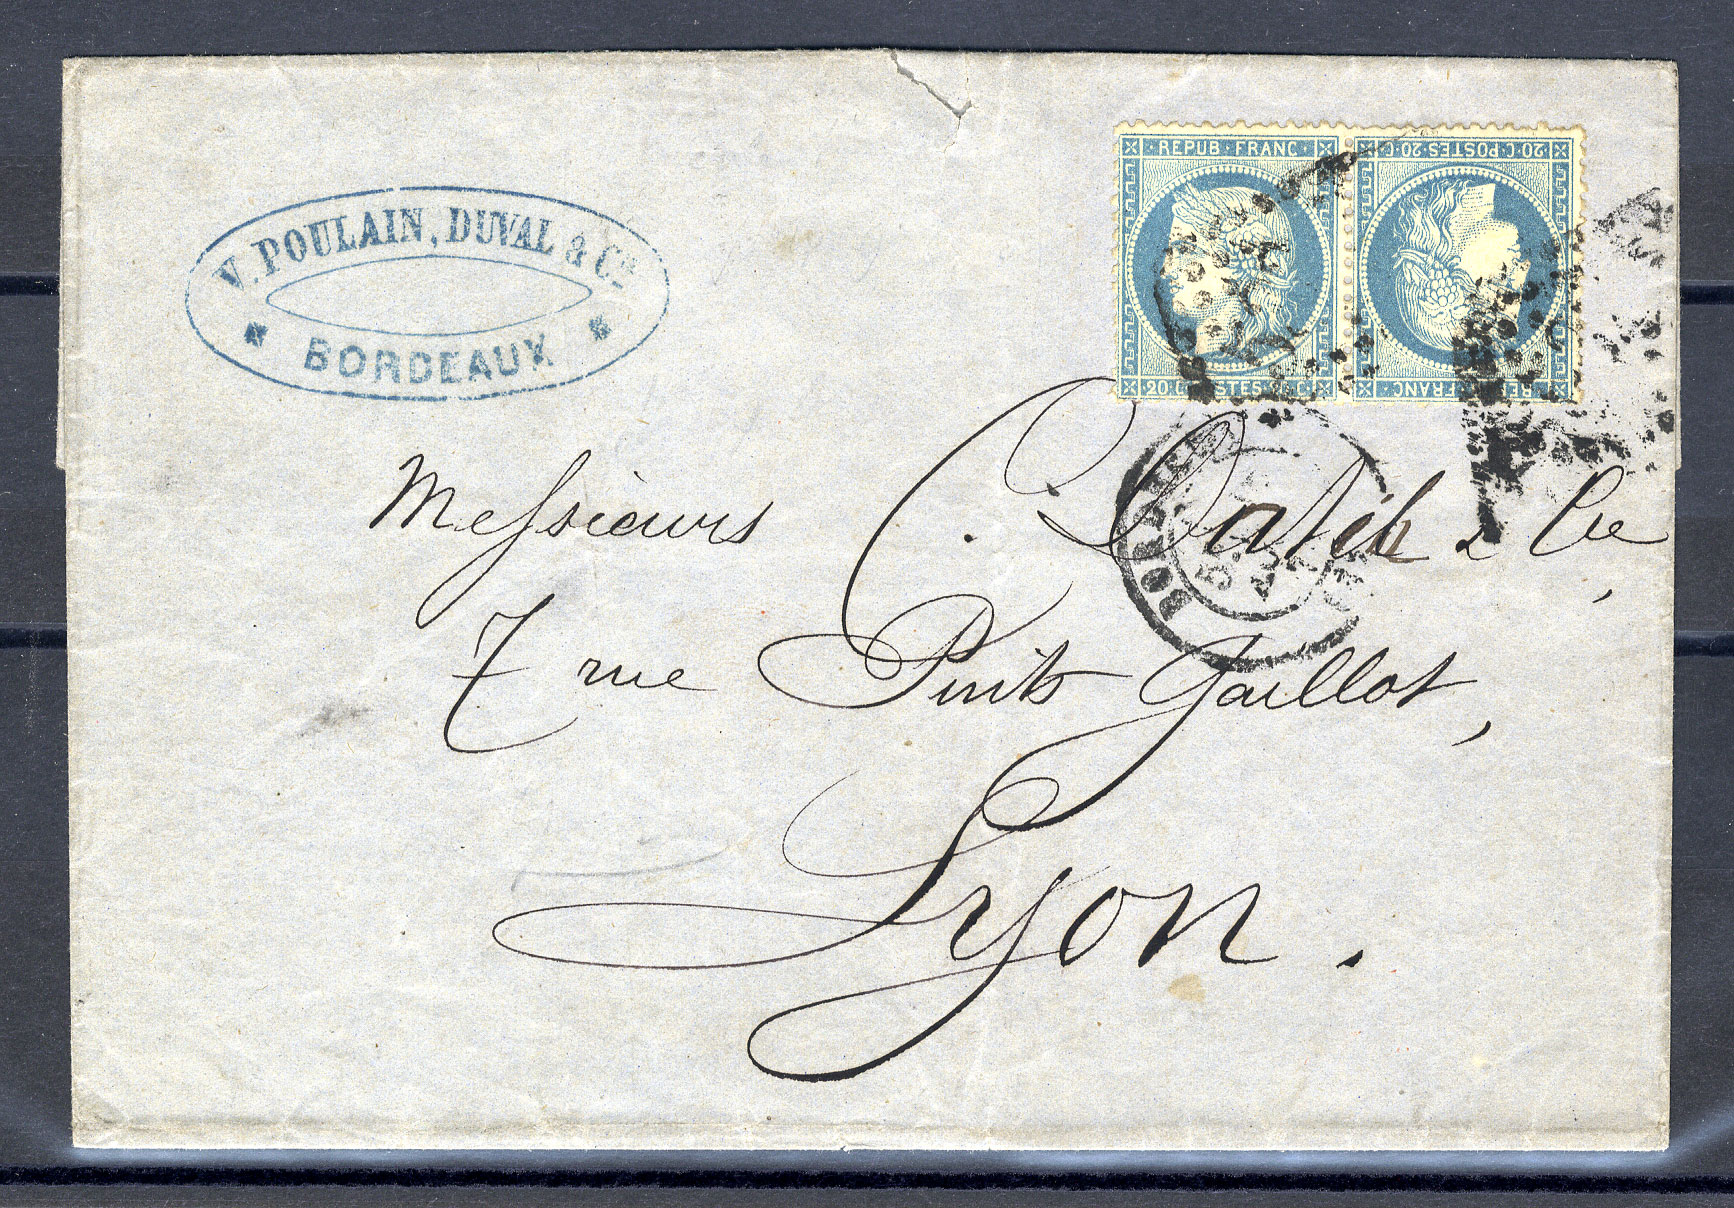 V. POULAIN, DUVAL & Cie
BORDEAUX
REPUB·FRANC·
20·C·POSTES·20·C·
20·C·POSTES·20·C·
REPUB·FRANC·
BORDEAUX
Messieurs C. & Cie
7 rue Puits Gaillot,
Lyon.